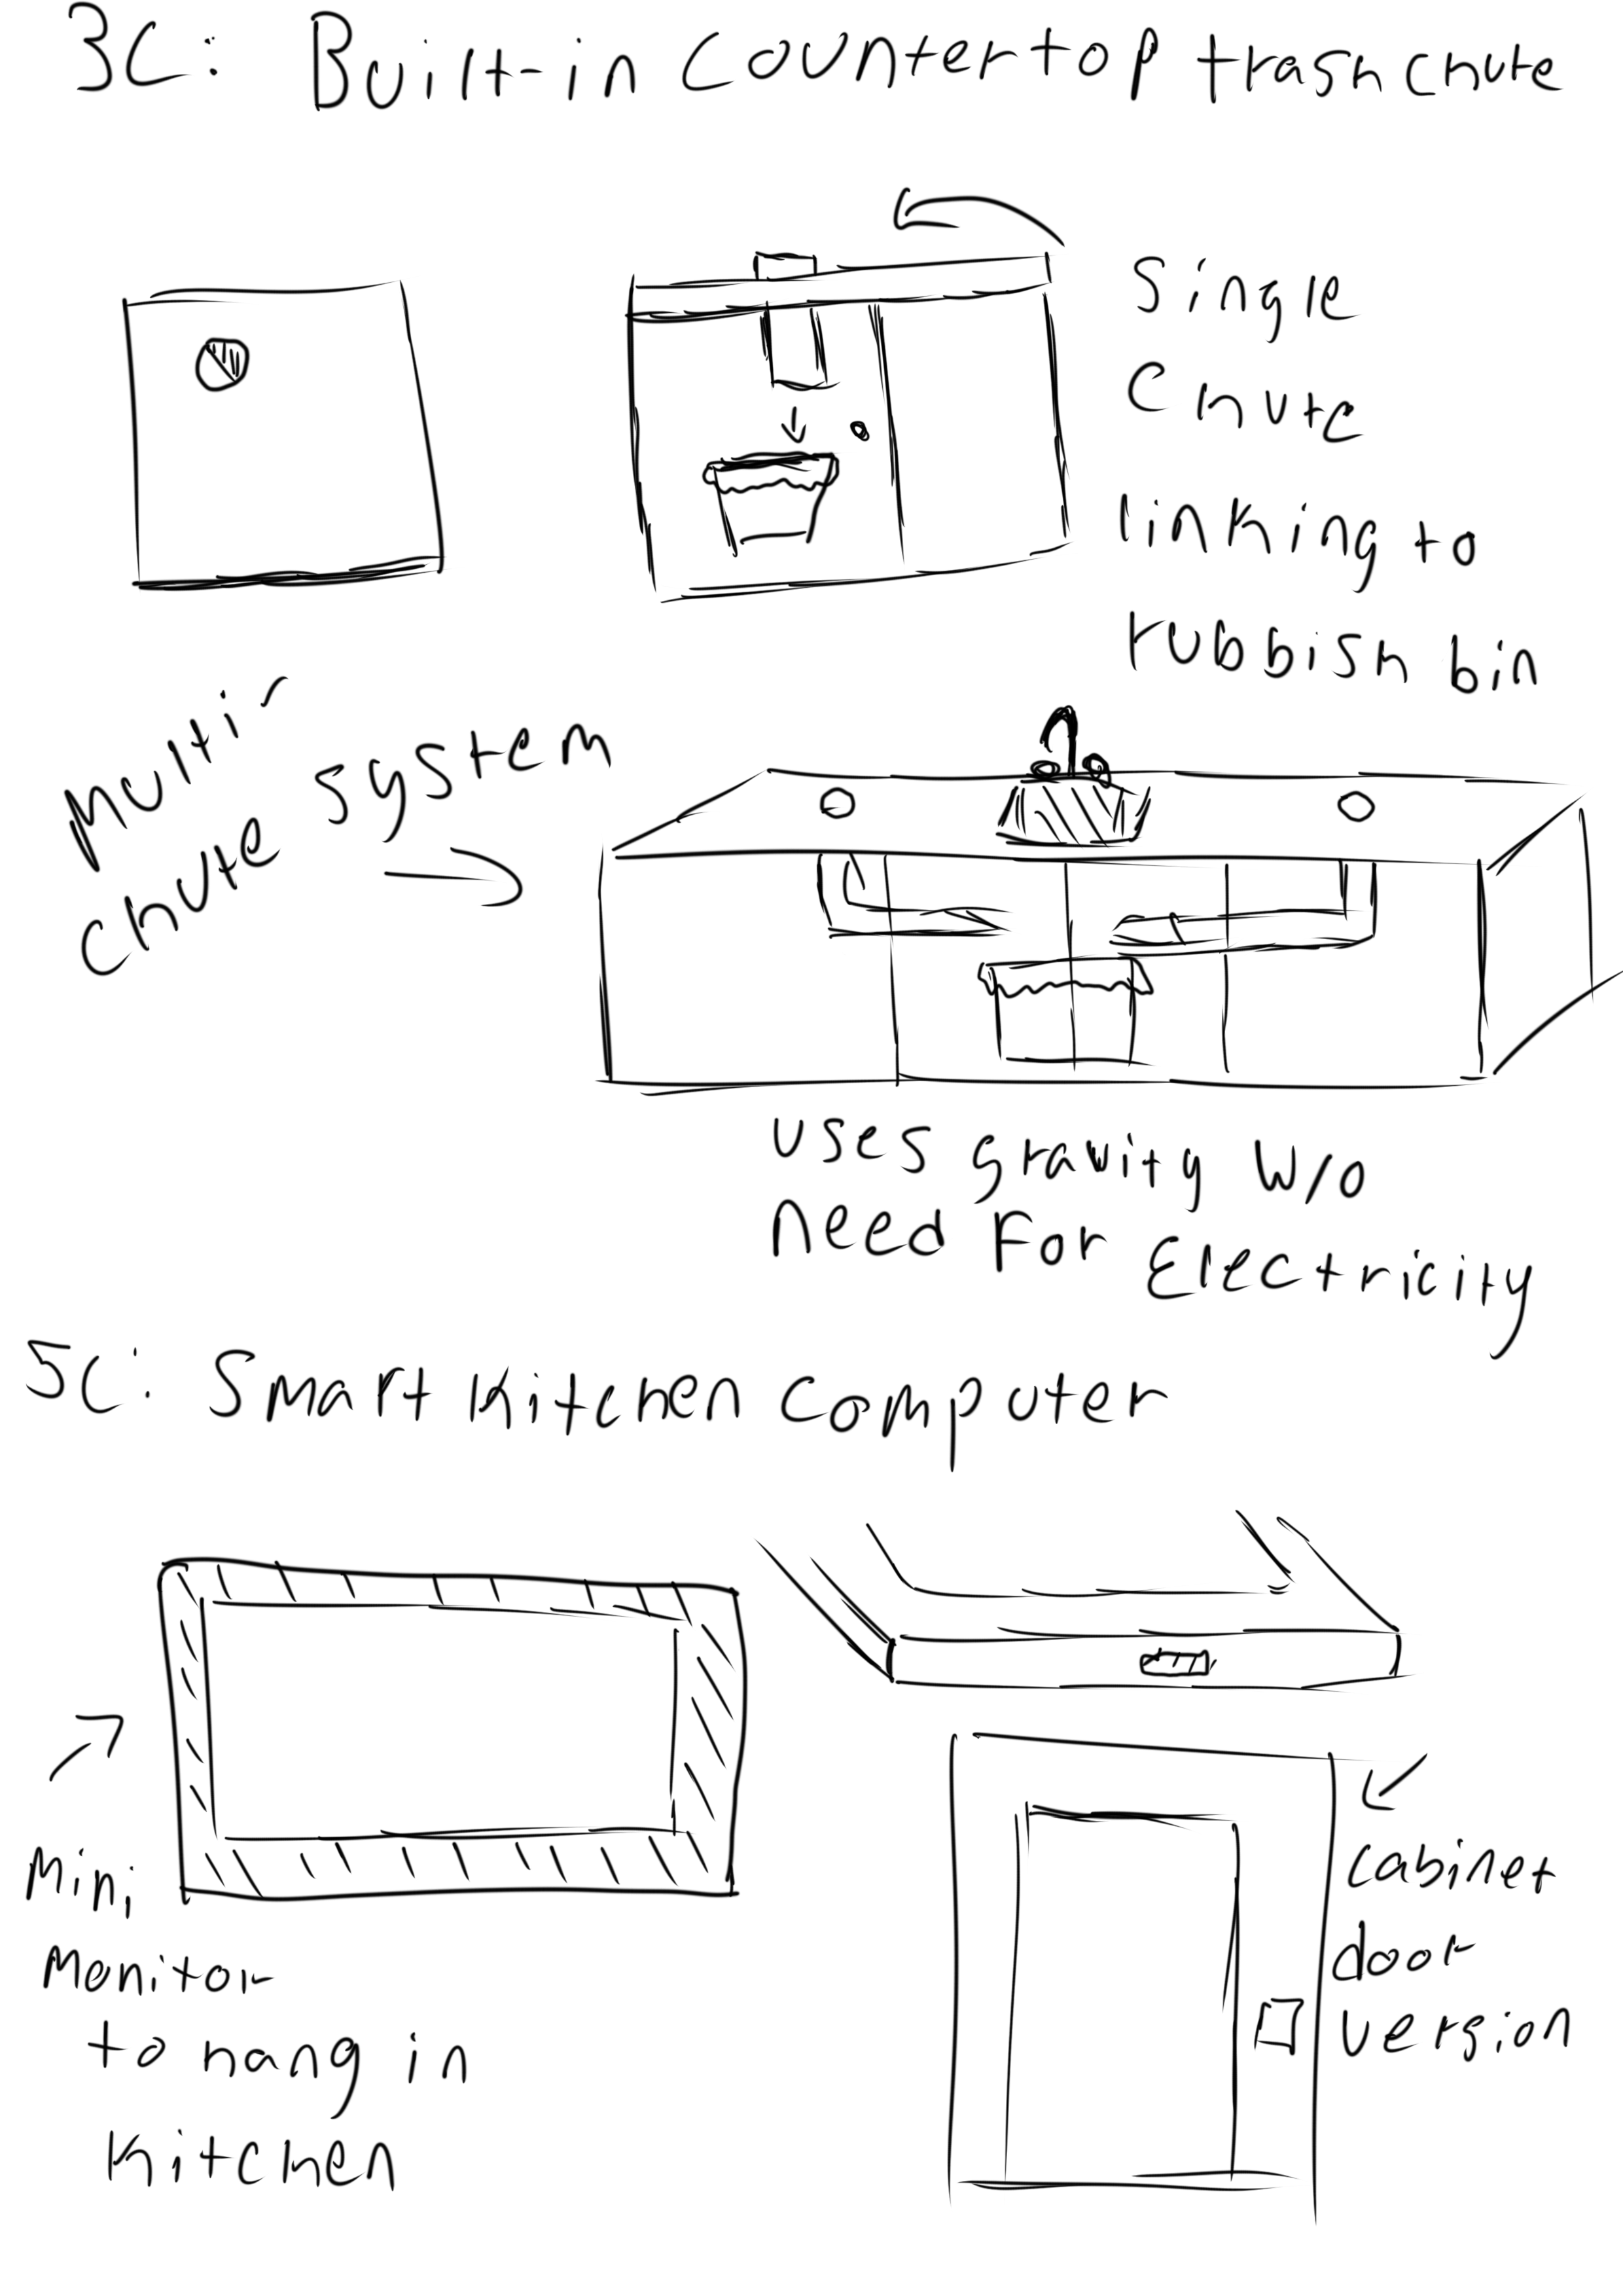 3C: Built-in countertop trash chute
Single
chute
linking to
rubbish bin
Multi-
chute system
uses gravity w/o
need for Electricity
5C: Smart kitchen computer
Mini
Monitor
to hang in
kitchen
cabinet
door
version